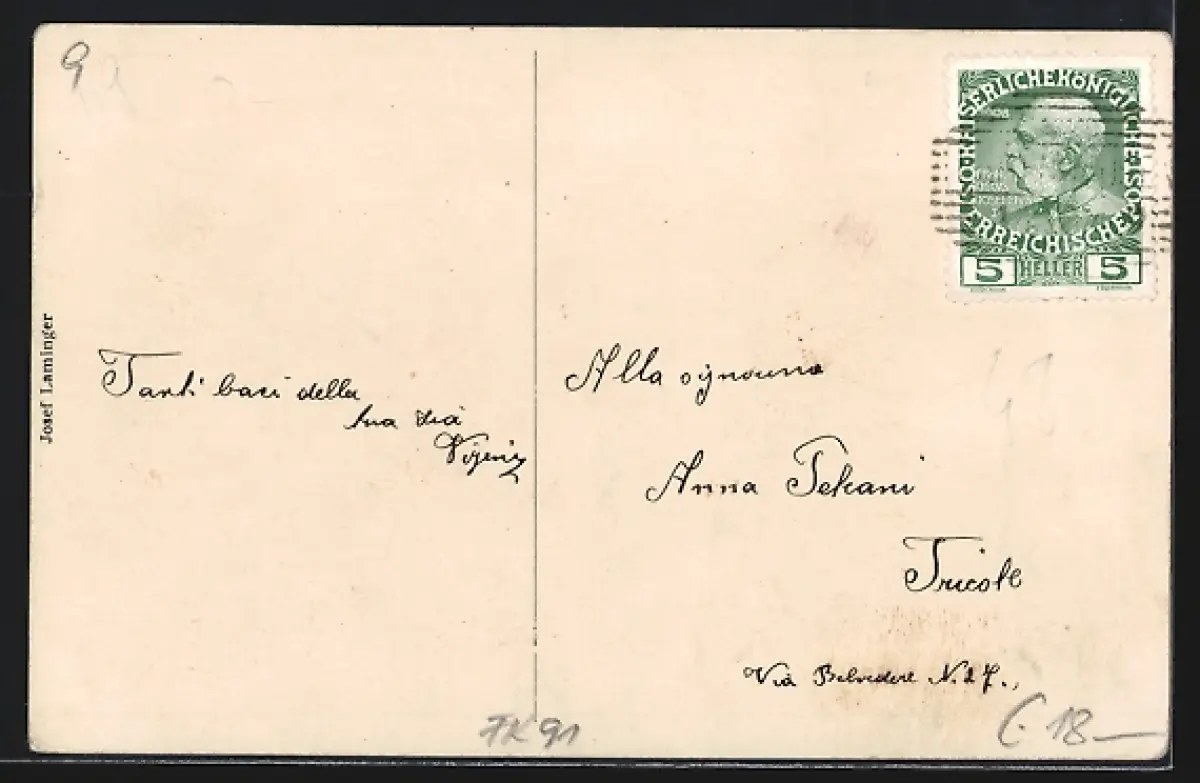 9
Josef Laminger
Tanti baci della
sua zia
KAISERLICHE KÖNIGLICHE ÖSTERREICHISCHE POST
5 HELLER 5
Alla signorina
Anna Pekani
Trieste
Via Belvedere N.
FK 91
18